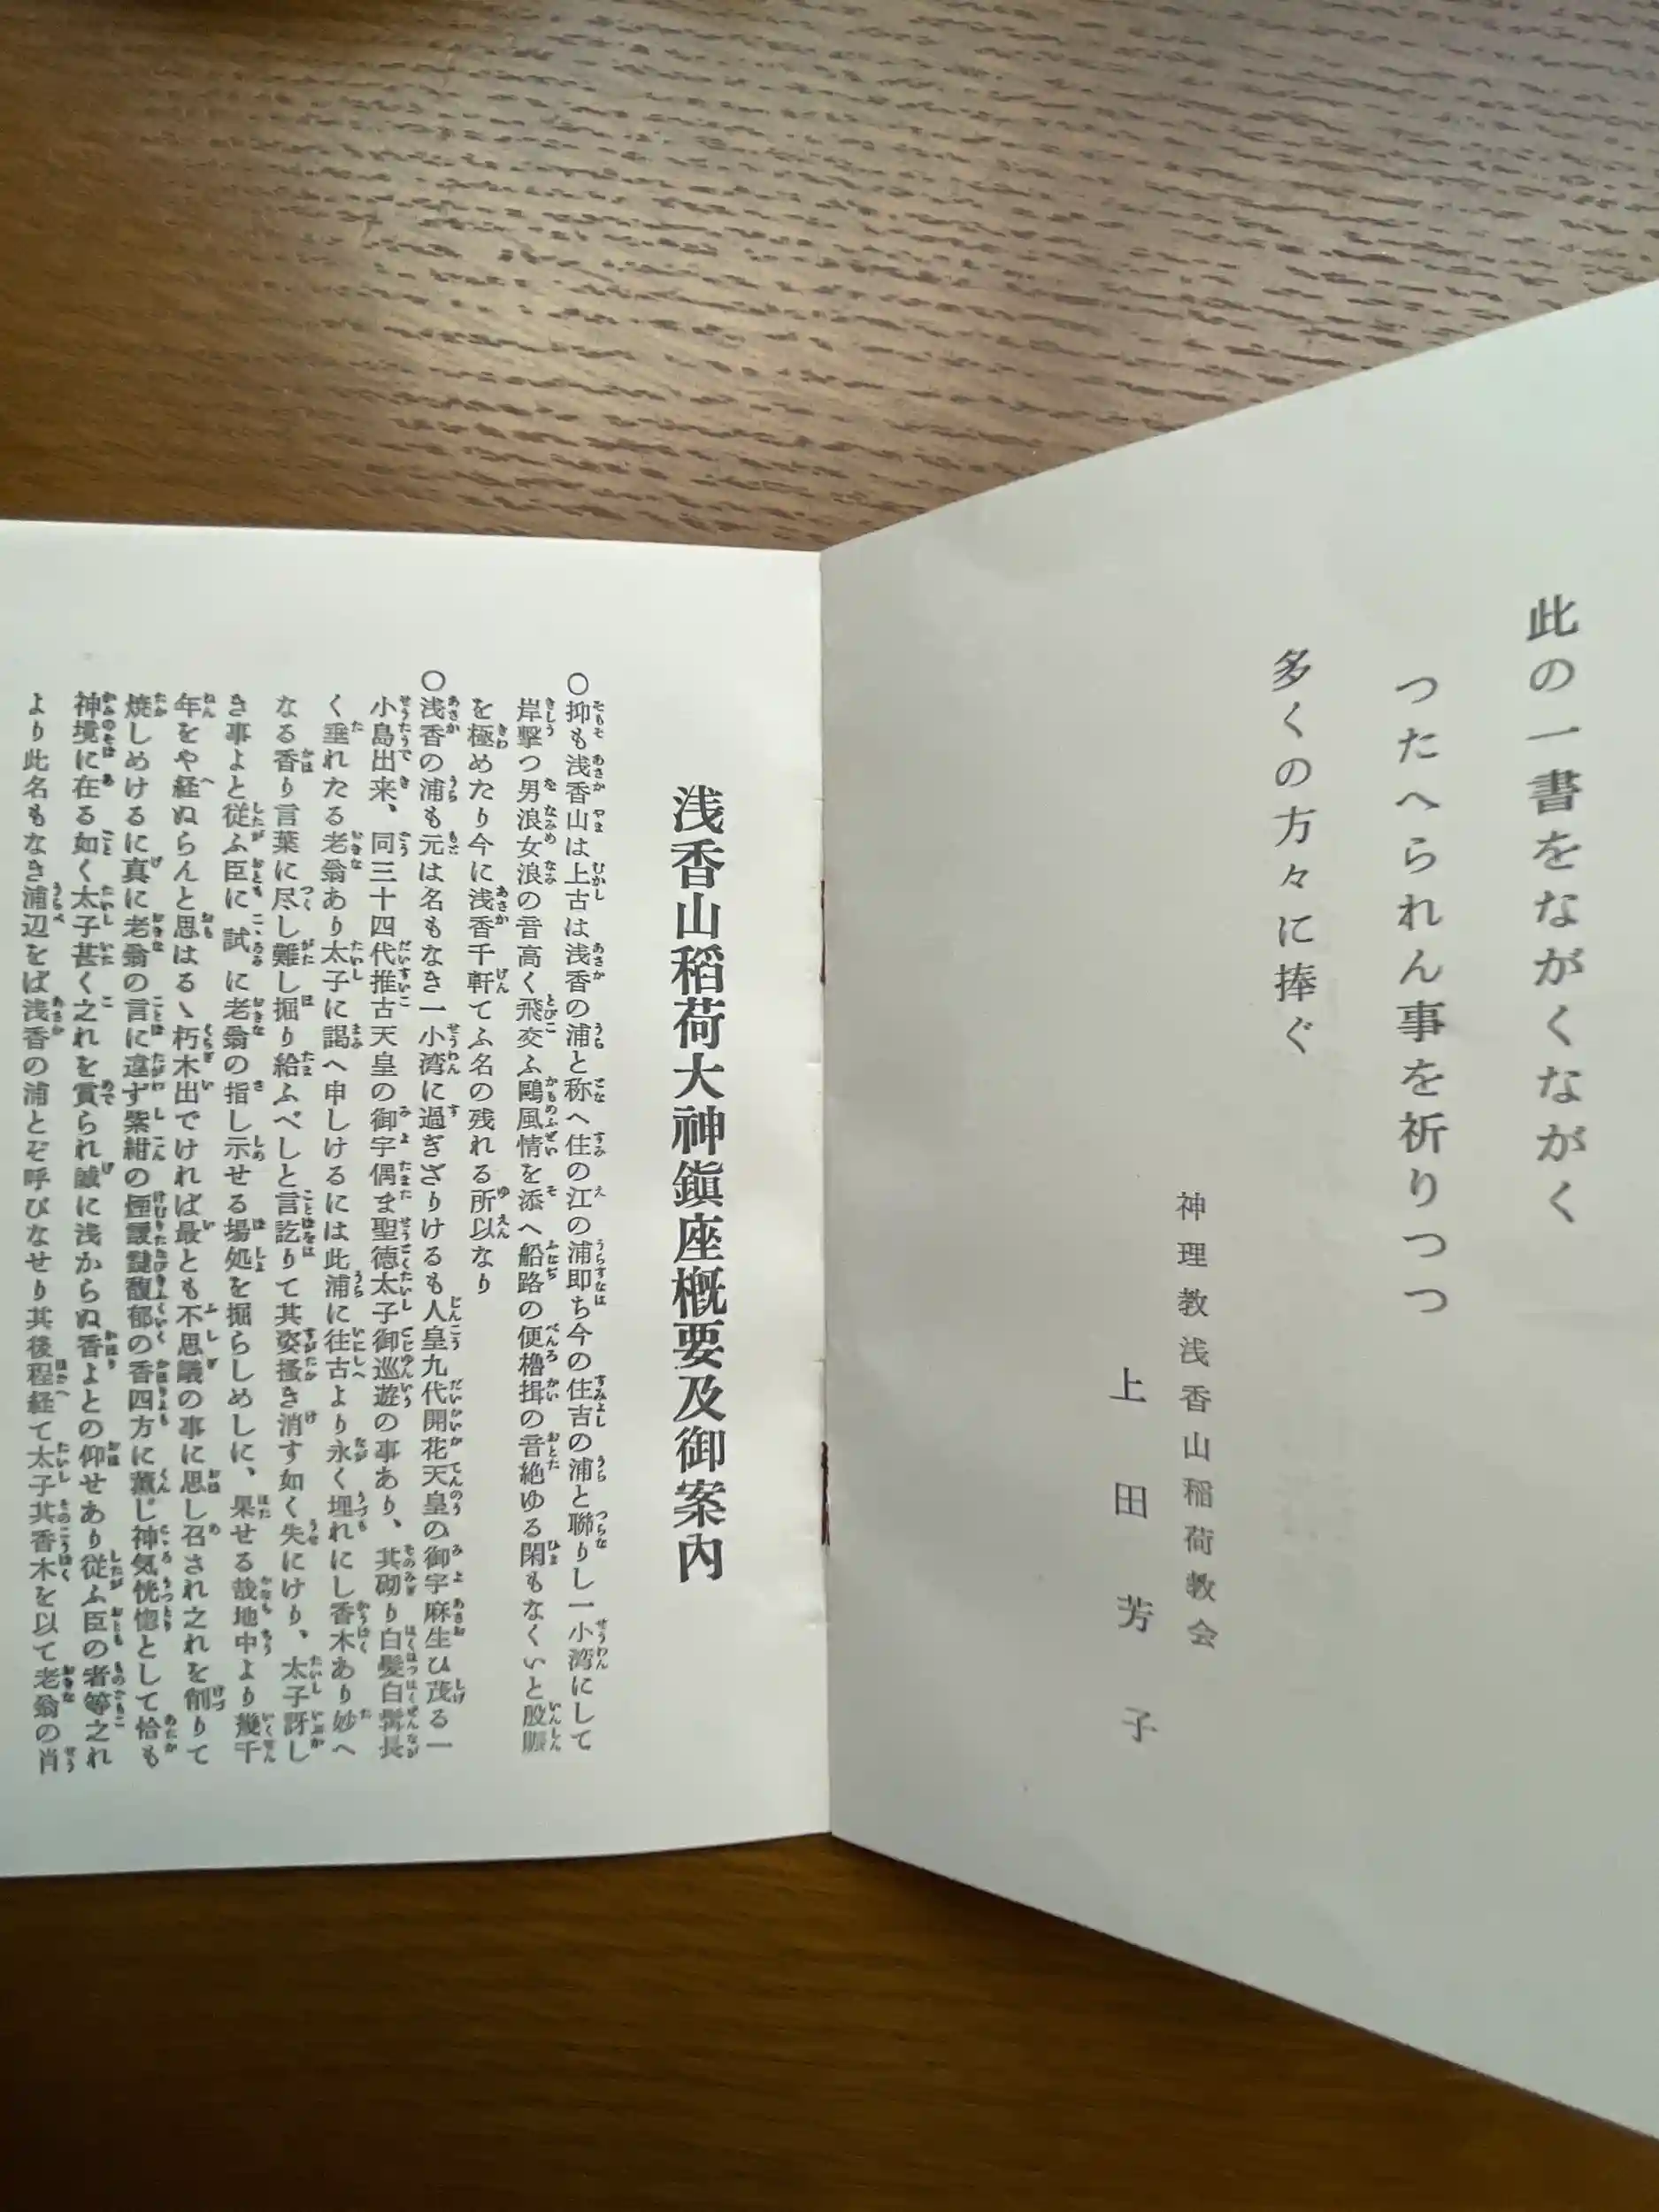 此の一書をながくながく
つたへられん事を祈りつつ
多くの方々に捧ぐ
神理教浅香山稲荷教会
上田芳子
浅香山稲荷大神鎭座概要及御案内
○抑も浅香山は上古は浅香の浦と称へ住の江の浦即ち今の住吉の浦と聯りし一小湾にして
岸擊つ男浪女浪の音高く飛交ふ鷗風情を添へ船路の便櫓揖の音絶ゆる閑もなくいと殷賑
を極めたり今に浅香千軒てふ名の残れる所以なり
○浅香の浦も元は名もなき一小湾に過ぎざりけるも人皇九代開花天皇の御宇麻生ひ茂る一
小島出来、同三十四代推古天皇の御宇偶ま聖徳太子御巡遊の事あり、其砌り白髪白髯長
く垂れたる老翁あり太子に謁へ申しけるには此浦に往古より永く埋れにし香木あり妙へ
なる香り言葉に尽し難し掘り給ふべしと言訖りて其姿搔き消す如く失にけり、太子訝し
き事よと従ふ臣に試に老翁の指し示せる場処を掘らしめしに、果せる哉地中より幾千
年をや経ぬらんと思はるゝ朽木出でければ最とも不思議の事に思し召され之れを削りて
焼しめけるに真に老翁の言に違ず紫紺の煙靉靆馥郁の香四方に薫じ神気恍惚として恰も
神境に在る如く太子甚く之れを賞られ誠に浅からぬ香よとの仰せあり従ふ臣の者等之れ
より此名もなき浦辺をば浅香の浦とぞ呼びなせり其後程経て太子其香木を以て老翁の肖